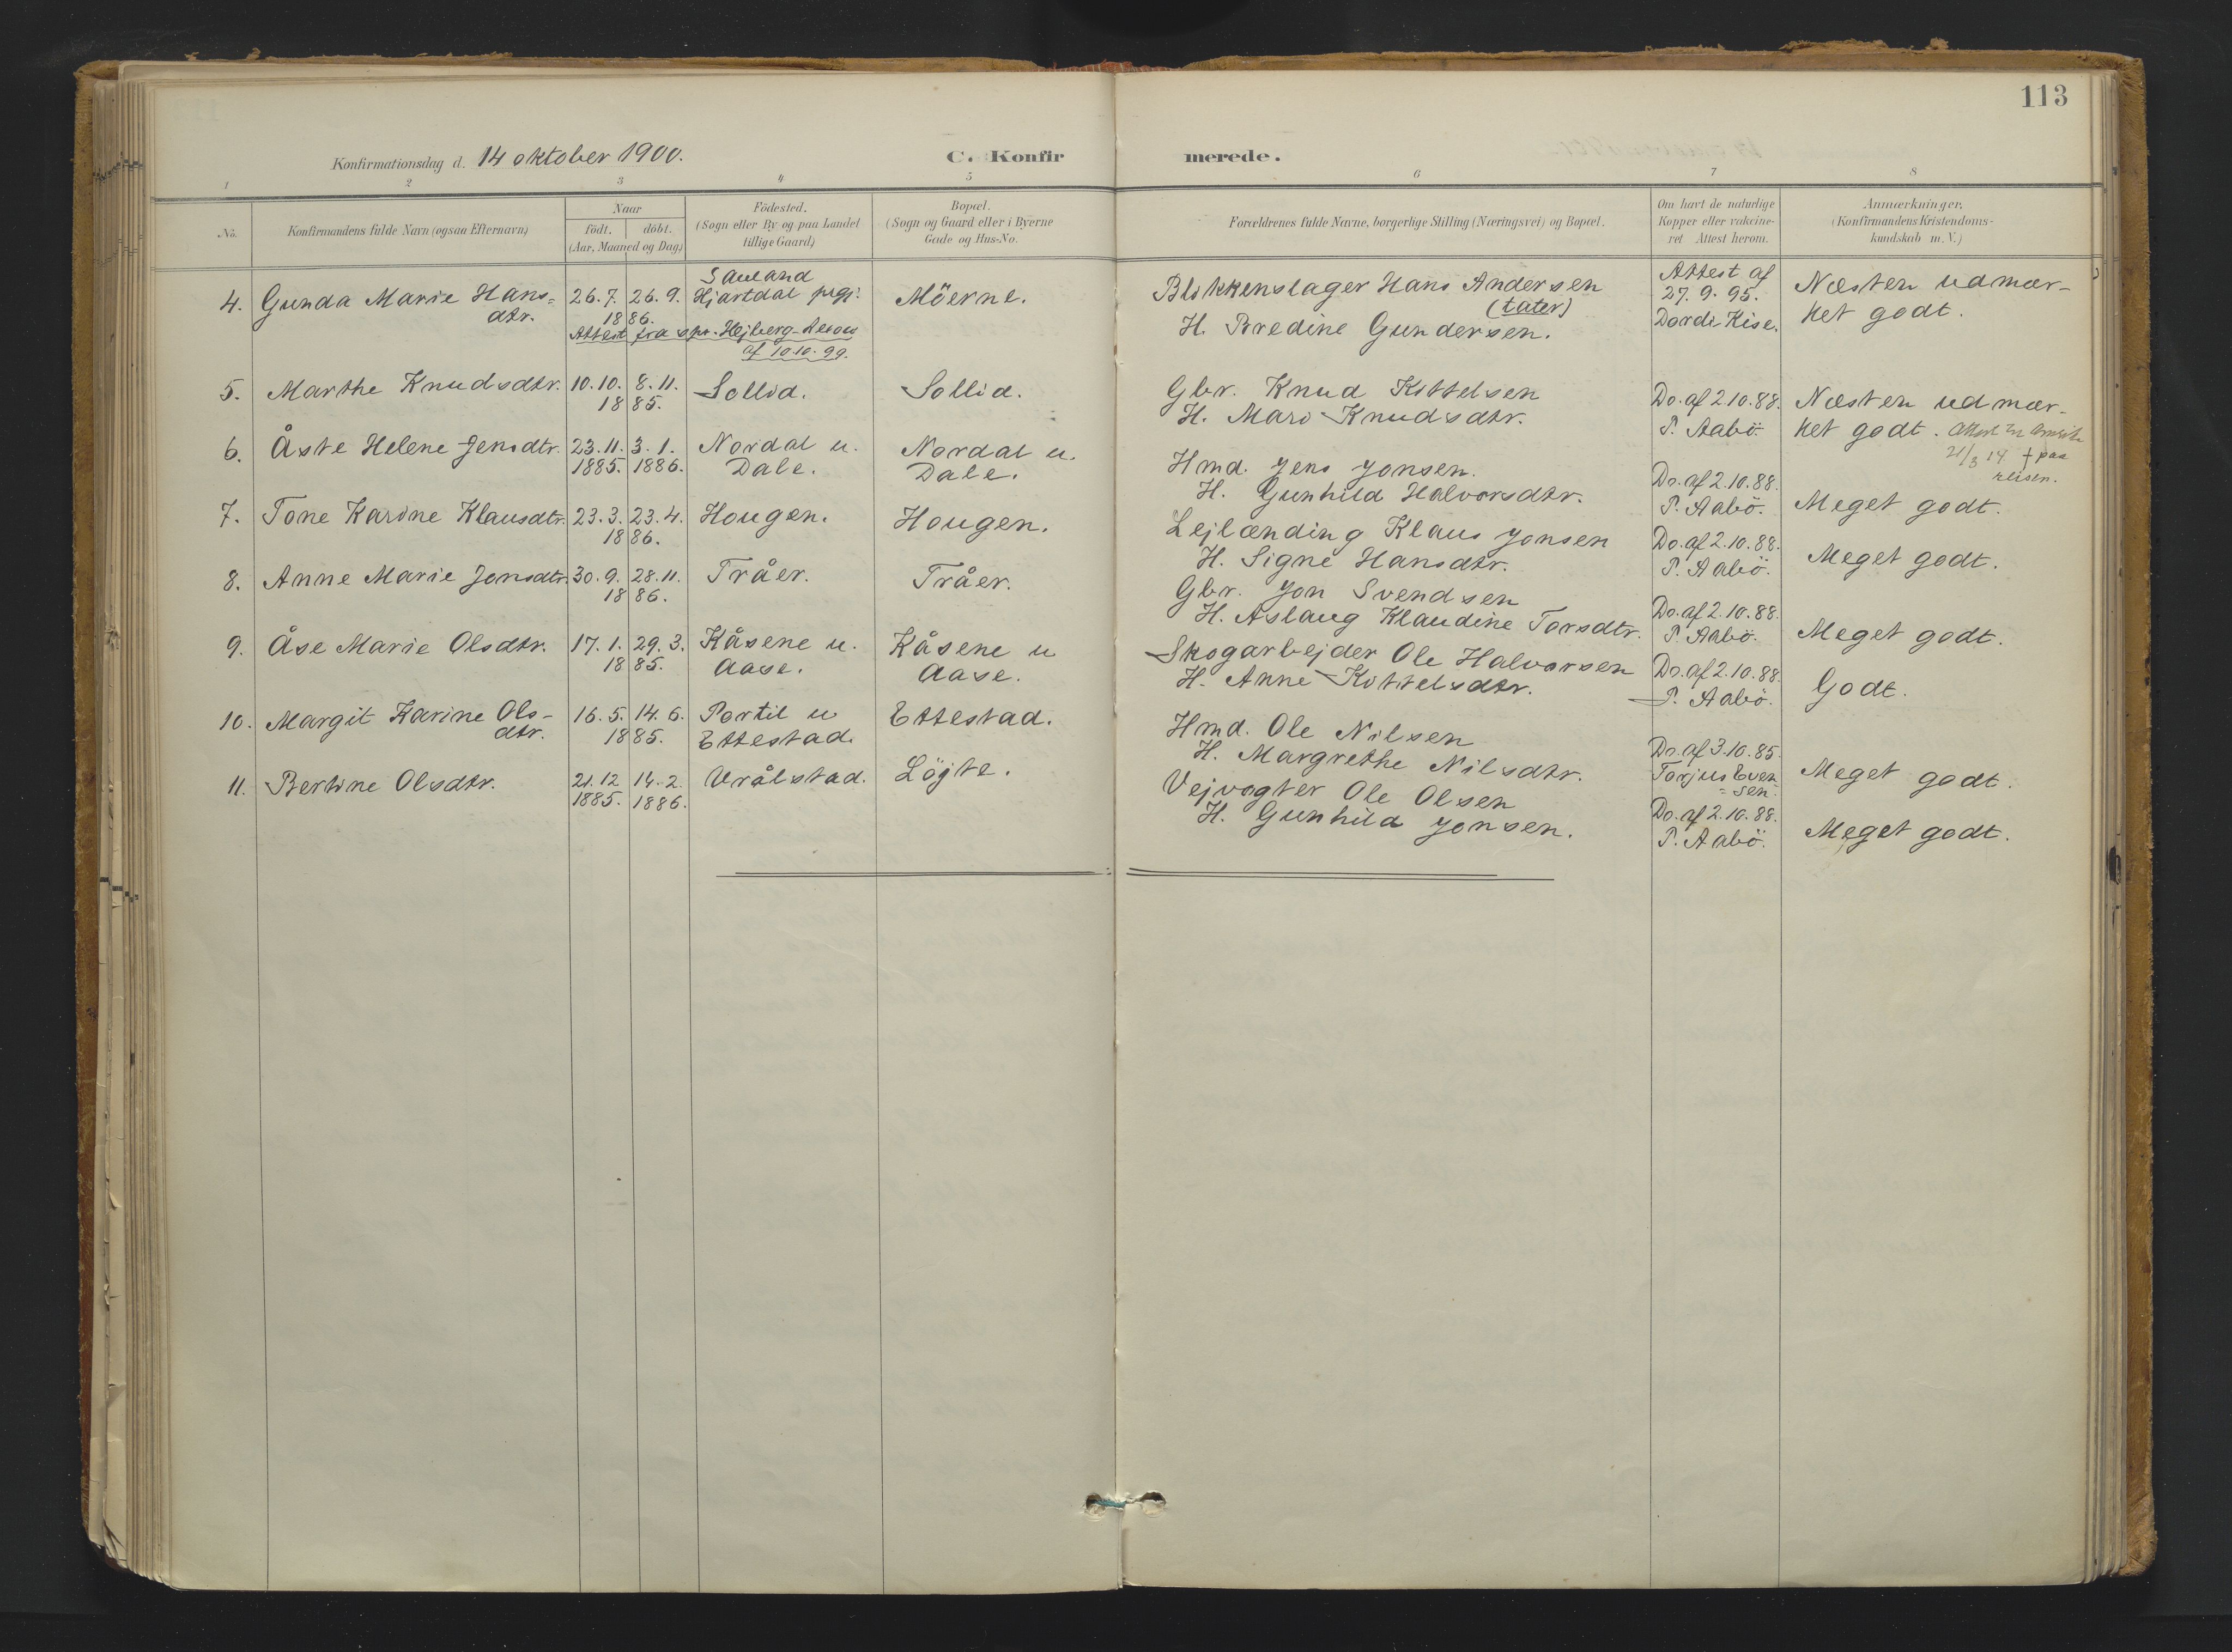 113
Konfirmationsdag d. 14 oktober 1900.
C. Konfirmerede.
1 2 3 4 5 6 7 8
No.
Konfirmandens fulde Navn (ogsaa Efternavn)
Naar
födt. döbt.
(Aar, Maaned og Dag)
Födested.
(Sogn eller By og paa Landet
tillige Gaard)
Bopæl.
(Sogn og Gaard eller i Byerne
Gade og Hus-No.
Forældrenes fulde Navne, borgerlige Stilling (Næringsvei) og Bopæl.
Om havt de naturlige
Kopper eller vaccine-
ret Attest herom.
Anmærkninger,
(Konfirmandens Kristendoms-
kundskab m. V.)
4. Gunda Marie Hans=
dtr.
26.7. 26.9.
1886.
Sauland
Hjartdal prgj.
Attest fra spr. Hejberg
af 10.10.99.
Möerne.
Blikkenslager Hans Andersen
(tater)
H. Bredine Gundersen.
Attest af
27.9.95.
Dordi Kise.
Næsten udmær-
ket godt.
5. Marthe Knudsdtr.
10.10. 8.11.
1885.
Sollid.
Sollid.
Gbr. Knud Kittelsen
H. Mari Knudsdtr.
Do. af 2.10.88.
P. Aabö.
Næsten udmær-
ket godt. Attest
21/3 14 † paa
reisen.
6. Åste Helene Jensdtr.
23.11. 3.1.
1885. 1886.
Nordal u.
Dale.
Nordal u.
Dale.
Hmd. Jens Jonsen.
H. Gunhild Halvorsdtr.
Do. af 2.10.88.
P. Aabö.
Meget godt.
7. Tone Karine Klausdtr.
23.3. 23.4.
1886.
Hougen.
Hougen.
Lejlænding Klaus Jonsen
H. Signe Hansdtr.
Do. af 2.10.88.
P. Aabö.
Meget godt.
8. Anne Marie Jonsdtr.
30.9. 28.11.
1886.
Tråer.
Tråer.
Gbr. Jon Svendsen
H. Aslaug Klaudine Torsdtr.
Do. af 2.10.88.
P. Aabö.
Meget godt.
9. Åse Marie Olsdtr.
17.1. 29.3.
1885.
Kåsene u.
Aase.
Kåsene u
Aase.
Skogarbejder Ole Halvorsen
H. Anne Kittelsdtr.
Do. af 2.10.88.
P. Aabö.
Godt.
10. Margit Karine Ols-
dtr.
16.5. 14.6.
1885.
Portil u
Ettestad.
Ettestad.
Hmd. Ole Nilsen
H. Margrethe Nilsdtr.
Do. af 3.10.85.
Torjus Even
=sen.
Meget godt.
11. Bertine Olsdtr.
21.12 14.2.
1885. 1886.
Vrålstad.
Löjte.
Vejvogter Ole Olsen
H. Gunhild Jonsen.
Do. af 2.10.88.
P. Aabö.
Meget godt.